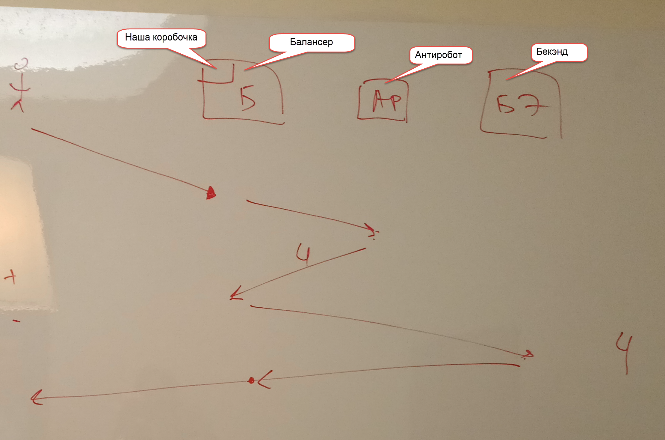 Наша коробочка
Балансер
Антиробот
Бекэнд
Б
АР
БЭ
Ч
+
-
Ч